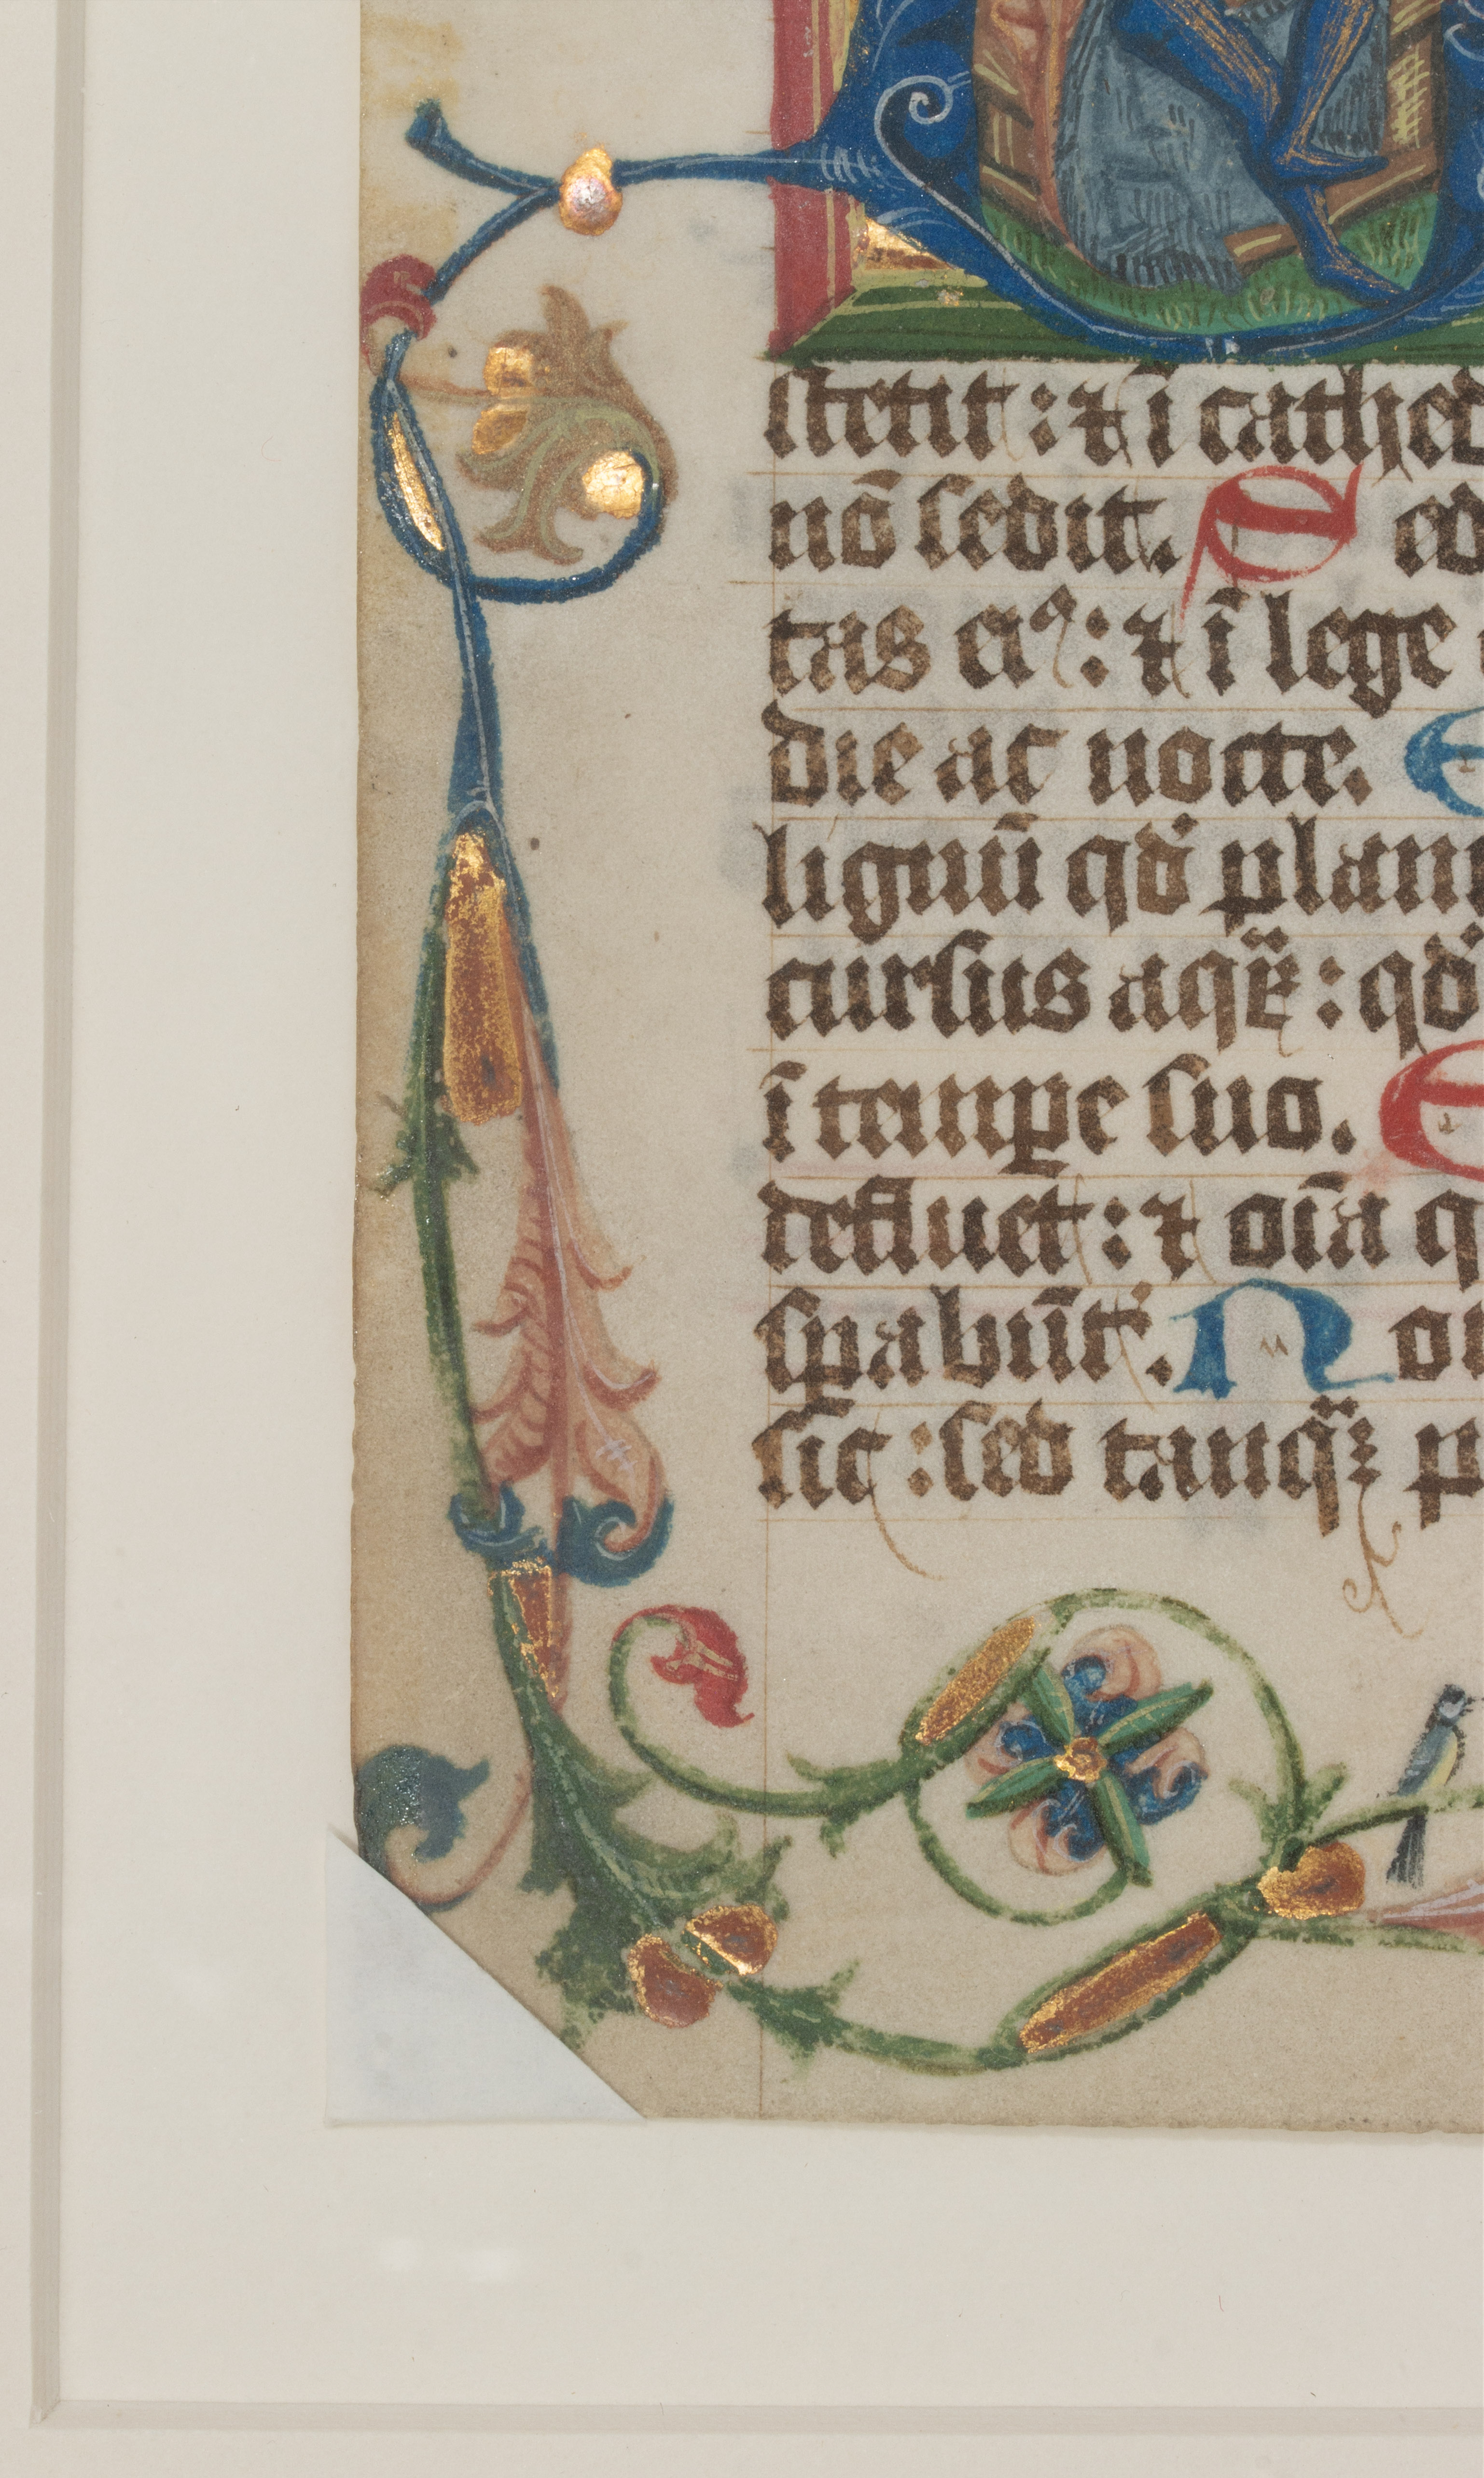 stetit : ⁊ ī cathed
nō sedit. S ed
tas eiꝰ : ⁊ ī lege
die ac nocte. E
lignū qd' plant
cursus aqꝝ : qd'
ī tempe suo. E
defluet : ⁊ oīa q
spabūt'. N on
sic : sed tanqꝫ p